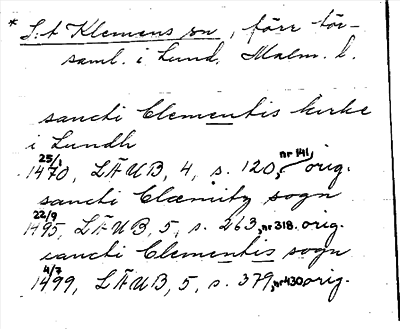 * S:t Klemens sn, förr för-
saml. i Lund, Malm. l.
sancti Clementis kirke
i Lundh
25/1 1470, LÄUB, 4, s. 120, nr 141, orig.
sancti Clæmitz sogn
22/9 1495, LÄUB, 5, s. 263, nr 318. orig.
sancti Clementis sogn
4/7 1499, LÄUB, 5, s. 379, nr 430 orig.